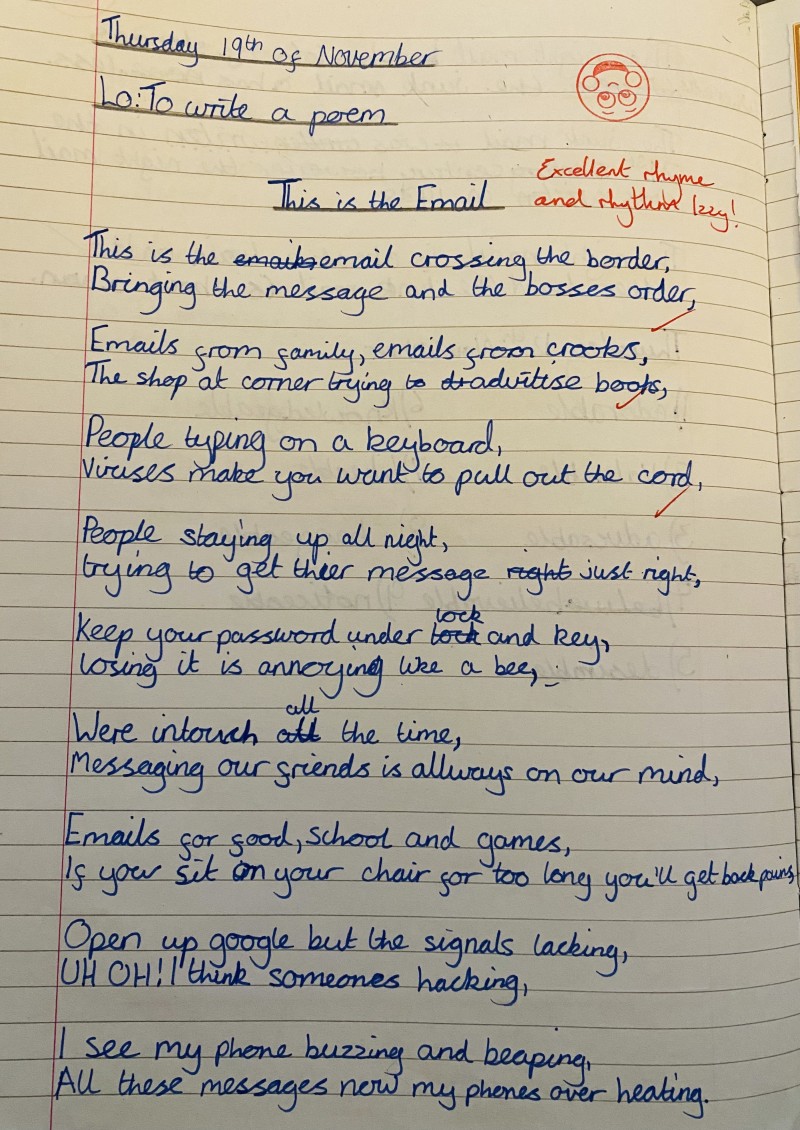 Thursday 19th of November
Lo: To write a poem
Excellent rhyme
and rhythm Izzy!
This is the Email
This is the emails email crossing the border,
Bringing the message and the bosses order,
Emails from family, emails from crooks,
The shop at corner trying to advitise books,
People typing on a keyboard,
Viruses make you want to pull out the cord,
People staying up all night,
trying to get thier message right just right,
lock
Keep your password under lock and key,
losing it is annoying like a bee,
all
Were intouch all the time,
Messaging our friends is allways on our mind,
Emails for food, school and games,
If your sit on your chair for too long you'll get back pains,
Open up google but the signals lacking,
UH OH! I think someones hacking,
I see my phone buzzing and beaping,
All these messages now my phones over heating.